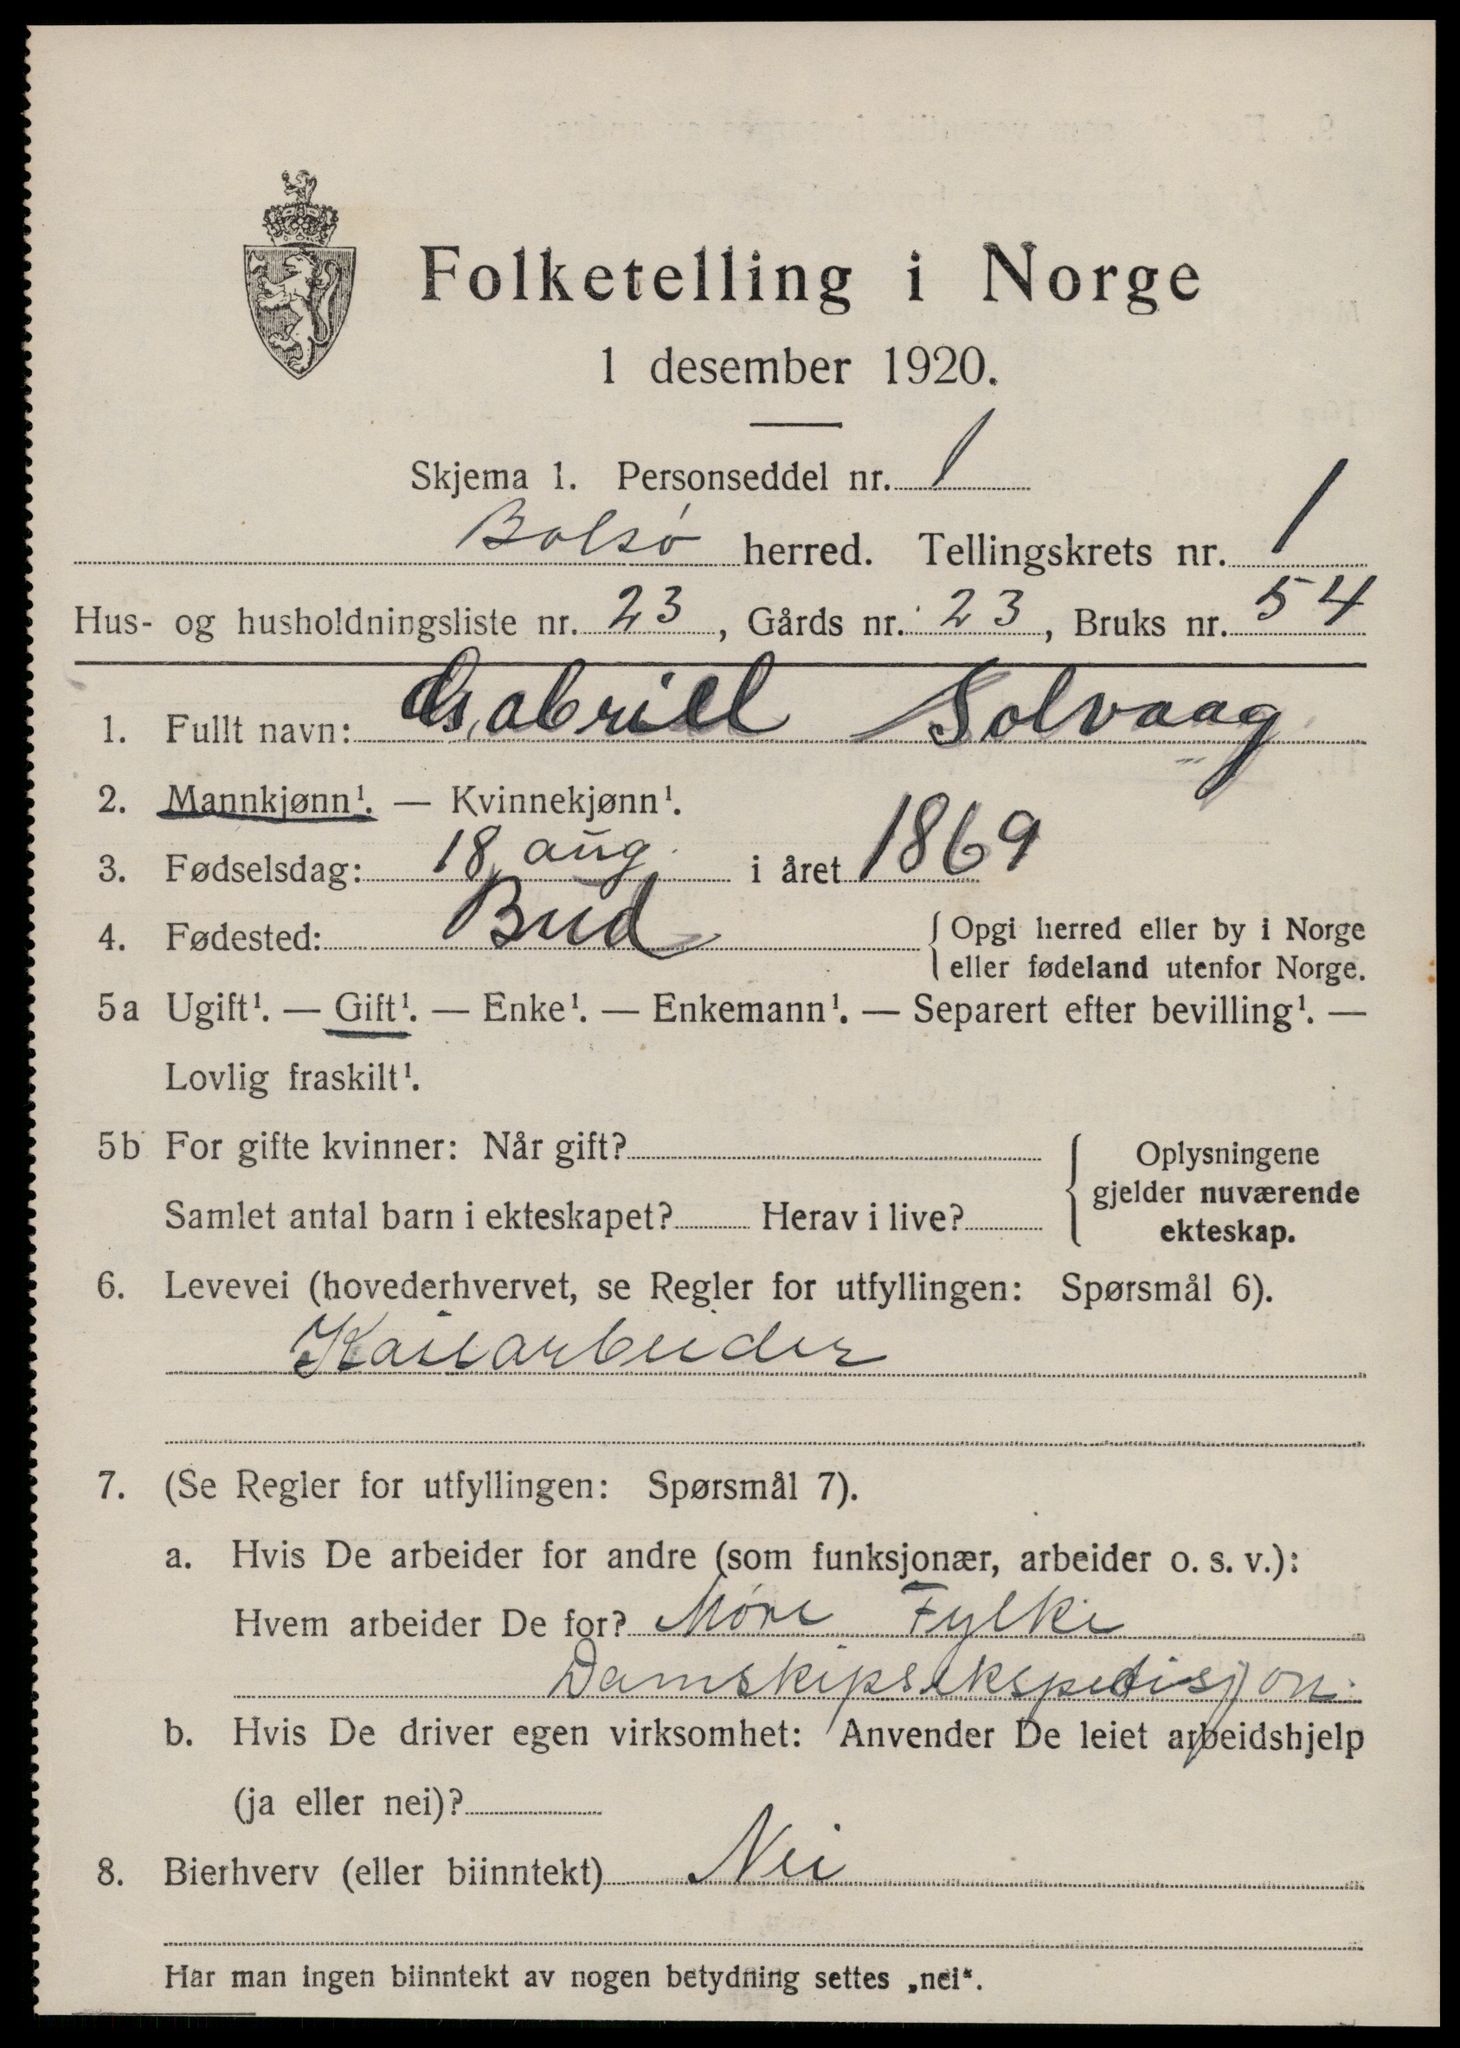 Folketelling i Norge
1 desember 1920.
Skjema 1. Personseddel nr. 1
Bolsø herred. Tellingskrets nr. 1
Hus- og husholdningsliste nr. 23, Gårds nr. 23, Bruks nr. 54
1. Fullt navn: Gabriell Solvaag
2. Mannkjønn¹. — Kvinnekjønn¹.
3. Fødselsdag: 18 aug. i året 1869
4. Fødested: Bud { Opgi herred eller by i Norge
eller fødeland utenfor Norge.
5a Ugift¹. — Gift¹. — Enke¹. — Enkemann¹. — Separert efter bevilling¹. —
Lovlig fraskilt¹.
5b For gifte kvinner: Når gift? { Oplysningene
gjelder nuværende
Samlet antal barn i ekteskapet? Herav i live? ekteskap.
6. Levevei (hovederhvervet, se Regler for utfyllingen: Spørsmål 6).
Kaiearbeider
7. (Se Regler for utfyllingen: Spørsmål 7).
a. Hvis De arbeider for andre (som funksjonær, arbeider o. s. v.):
Hvem arbeider De for? Møre Fylke
Damskipsekspedisjon.
b. Hvis De driver egen virksomhet: Anvender De leiet arbeidshjelp
(ja eller nei)?
8. Bierhverv (eller biinntekt) Nei
Har man ingen biinntekt av nogen betydning settes „nei“.